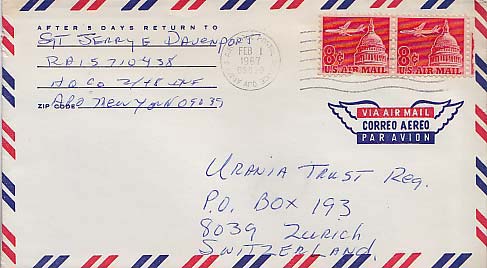 AFTER 5 DAYS RETURN TO
SGT JERRY E DAVENPORT
RA15710438
HQ CO 2/48 INF
ZIP CODE APO NEW YORK 09039
FEB 1
1967
8¢ U.S. AIR MAIL
8¢ U.S. AIR MAIL
VIA AIR MAIL
CORREO AEREO
PAR AVION
URANIA TRUST Reg.
P.O. BOX 193
8039 Zurich
SWITZERLAND.